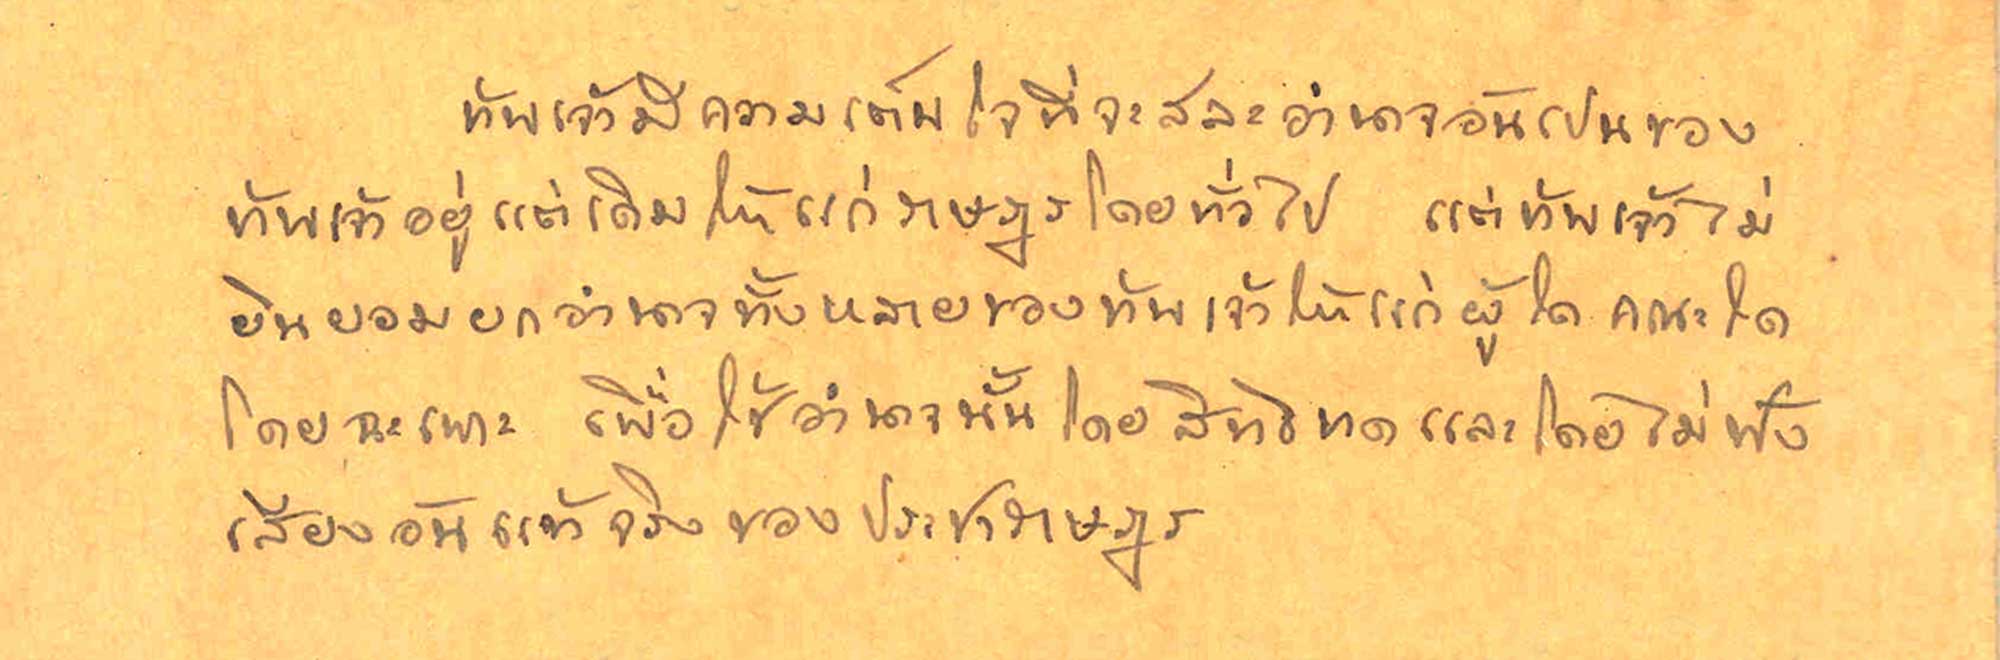 ข้าพเจ้ามีความเต็มใจที่จะสละอำนาจอันเปนของ
ข้าพเจ้าอยู่แต่เดิมให้แก่ราษฎรโดยทั่วไป แต่ข้าพเจ้าไม่
ยินยอมยกอำนาจทั้งหลายของข้าพเจ้าให้แก่ผู้ใด คณะใด
โดยฉะเพาะ เพื่อใช้อำนาจนั้นโดยสิทธิขาด และโดยไม่ฟัง
เสียงอันแท้จริงของประชาราษฎร